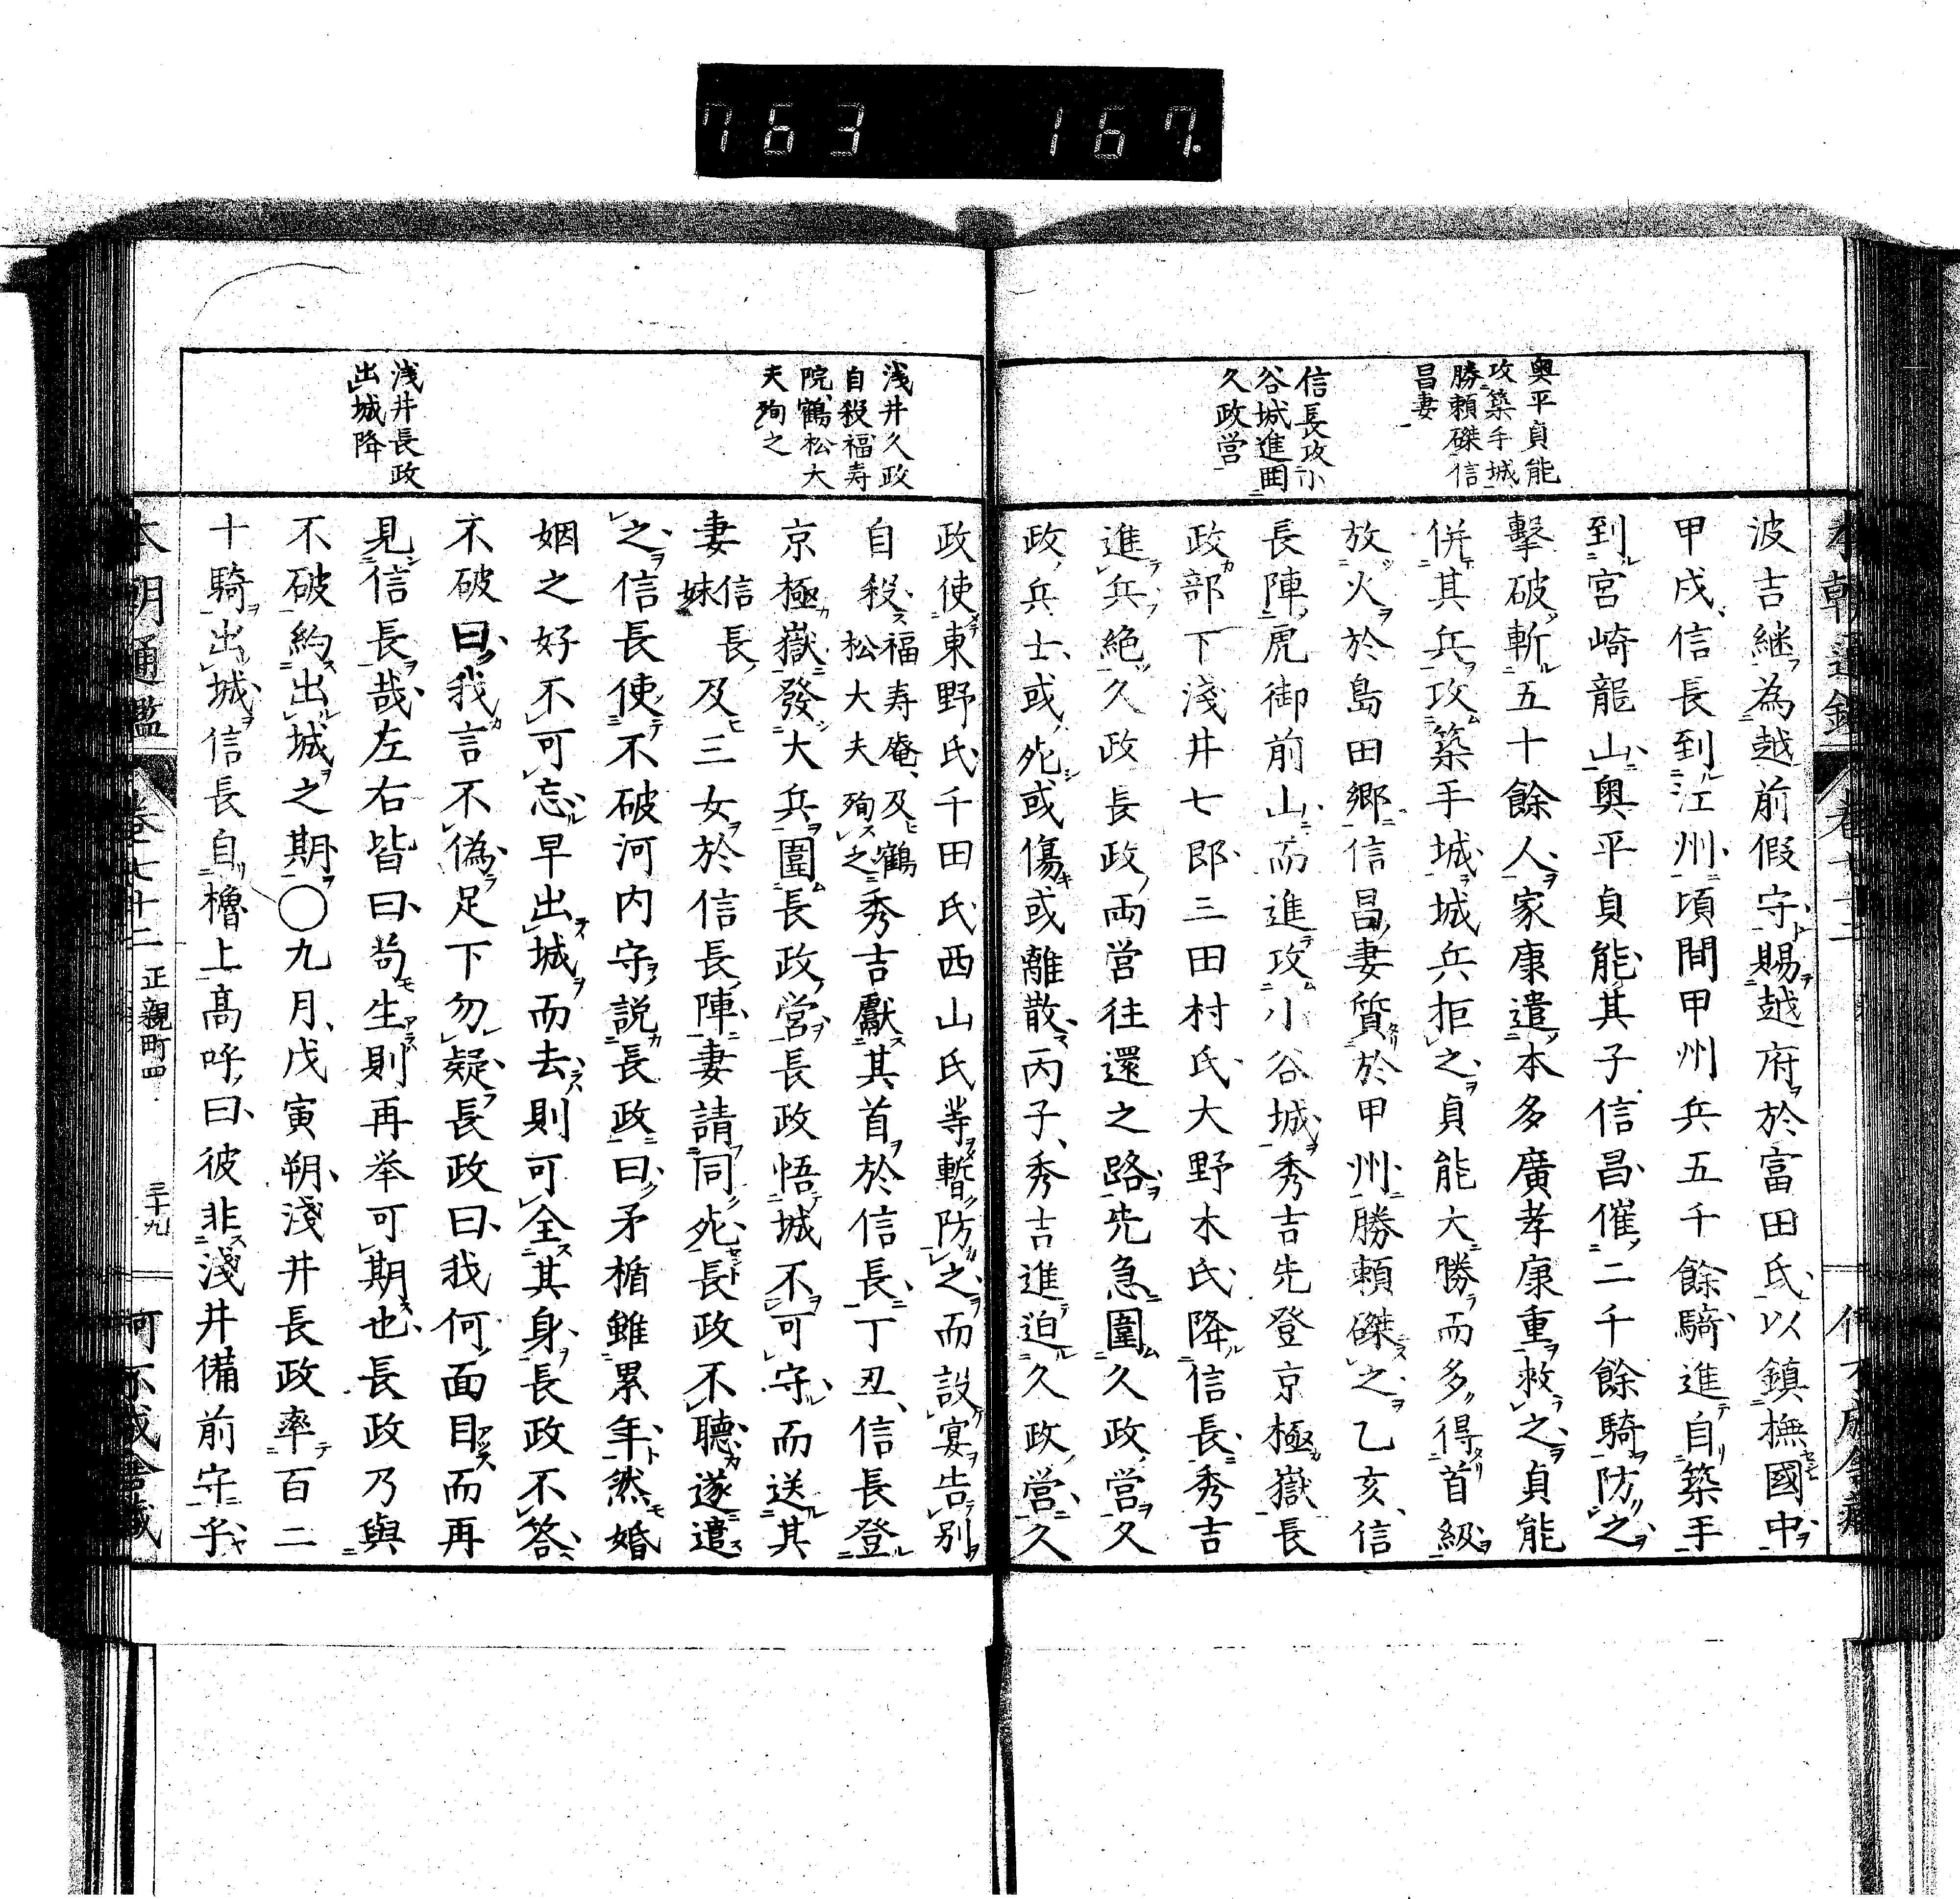 763 167
奥平貞能
攻築手城
勝頼磔信
昌妻
信長攻小
谷城進囲
久政営
波吉継為越前假守賜越府於富田氏以鎮撫國中
甲戌信長到江州頃間甲州兵五千餘騎進自築手
到宮崎龍山奥平貞能其子信昌催二千餘騎防之
擊破斬五十餘人家康遣本多廣孝康重救之貞能
併其兵攻築手城城兵拒之貞能大勝而多得首級
放火於島田郷信昌妻質於甲州勝頼磔之乙亥信
長陣虎御前山而進攻小谷城秀吉先登京極嶽長
政部下淺井七郎三田村氏大野木氏降信長秀吉
進兵絶久政長政両営往還之路先急圍久政営久
政兵士或死或傷或離散丙子秀吉進迫久政営久
浅井久政
自殺福寿
院鶴松大
夫殉之
浅井長政
出城降
政使東野氏千田氏西山氏等暫防之而設宴告別
自殺福寿庵及鶴松大夫殉之秀吉獻其首於信長丁丑信長登
京極嶽發大兵圍長政営長政悟城不可守而送其
妻信長妹及三女於信長陣妻請同死長政不聴遂遣
之信長使不破河内守説長政曰矛楯雖累年然婚
姻之好不可忘早出城而去則可全其身長政不答
不破曰我言不偽足下勿疑長政曰我何面目而再
見信長哉左右皆曰苟生則再挙可期也長政乃與
不破約出城之期〇九月戊寅朔淺井長政率百二
十騎出城信長自櫓上高呼曰彼非淺井備前守乎
本朝通鑑 卷七十二 正親町四 三十九